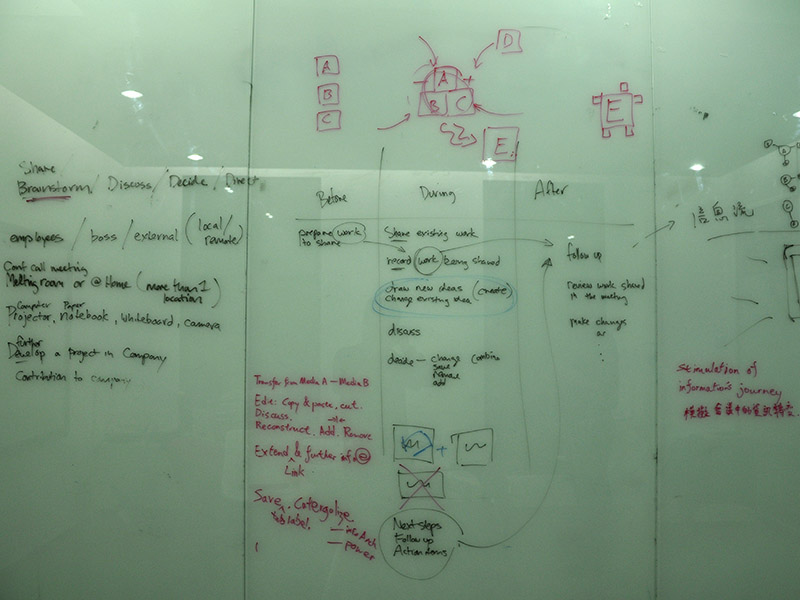 Share
Brainstorm / Discuss / Decide / Direct
employees / boss / external (local/remote)
Conf call meeting
Meeting room or @ Home (more than 1 location)
Computer Paper
Projector, notebook, whiteboard, camera
further
Develop a project in Company
Contribution to company
A
B
C
D
A
B C
E
E
Before
During
After
prepare work
to share
Share existing work
record work being shared
draw new ideas (create)
change existing idea
discuss
decide — change combine
save
remove
add
+
Next steps
Follow up
Action items
follow up
review work shared
in the meeting
make changes
Transfer from Media A — Media B
Edit: Copy & paste, cut.
Discuss.
Reconstruct. Add. Remove
Extend & further info
Link
Save. Catergolize.
label.
— info Arch
— power
信息流
A
B
C
Stimulation of
information's journey
模擬會議中的